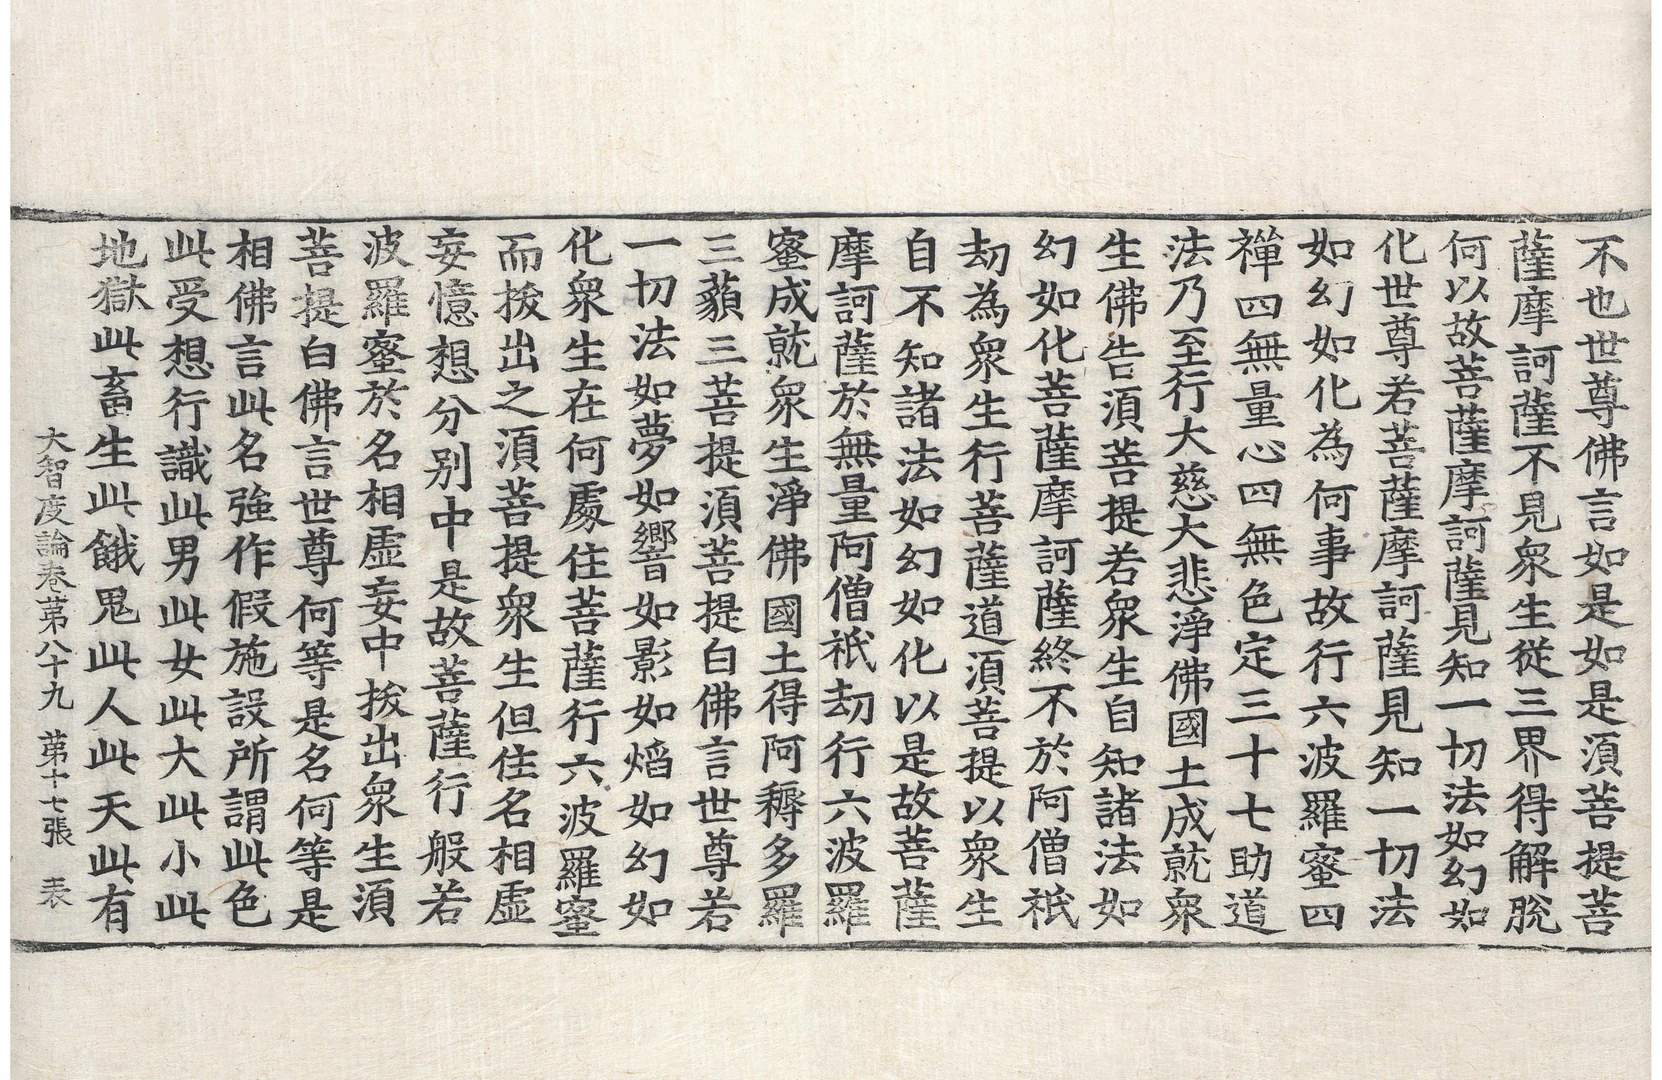 不也世尊佛言如是如是須菩提菩
薩摩訶薩不見衆生從三界得解脫
何以故菩薩摩訶薩見知一切法如幻如
化世尊若菩薩摩訶薩見知一切法
如幻如化為何事故行六波羅蜜四
禪四無量心四無色定三十七助道
法乃至行大慈大悲淨佛國土成就衆
生佛告須菩提若衆生自知諸法如
幻如化菩薩摩訶薩終不於阿僧祇
劫為衆生行菩薩道須菩提以衆生
自不知諸法如幻如化以是故菩薩
摩訶薩於無量阿僧祇劫行六波羅
蜜成就衆生淨佛國土得阿耨多羅
三藐三菩提須菩提白佛言世尊若
一切法如夢如響如影如熖如幻如
化衆生在何處住菩薩行六波羅蜜
而拔出之須菩提衆生但住名相虛
妄憶想分別中是故菩薩行般若
波羅蜜於名相虛妄中拔出衆生須
菩提白佛言世尊何等是名何等是
相佛言此名強作假施設所謂此色
此受想行識此男此女此大此小此
地獄此畜生此餓鬼此人此天此有
大智度論卷第八十九 第十七張 表